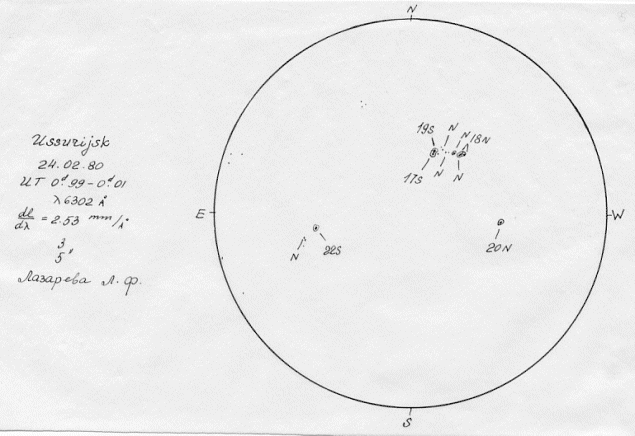 Ussurijsk
24.02.80
UT 0ᵈ.99-0ᵈ.01
λ 6302 Å
dl/dλ = 2.53 mm/Å
3
5"
Лазарева Л. Ф.
N
E
W
S
19S
N
N
18N
17S
N
N
20N
N
22S